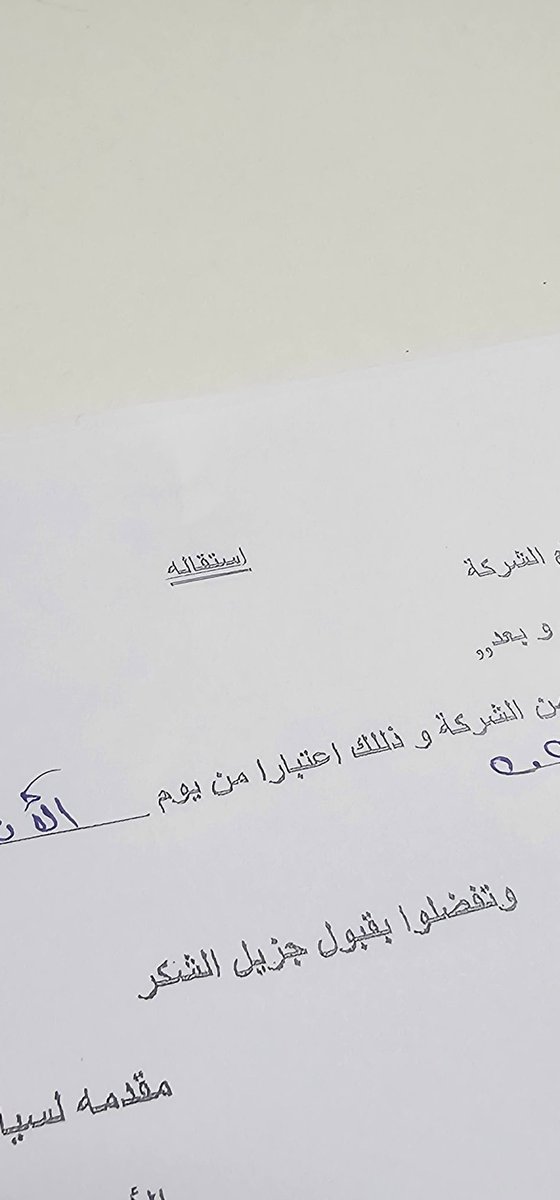 استقاله
الشركة
و بعد,,
الشركة و ذلك اعتبارا من يوم
وتفضلوا بقبول جزيل الشكر
مقدمه